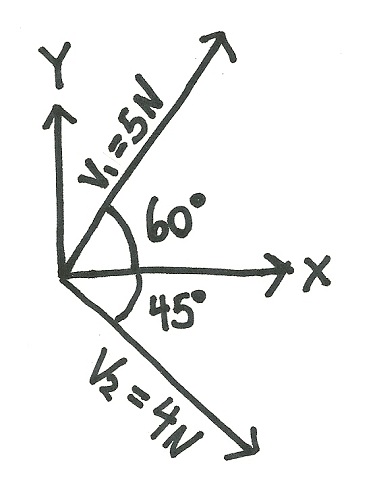 Y
V₁=5N
60°
X
45°
V₂=4N